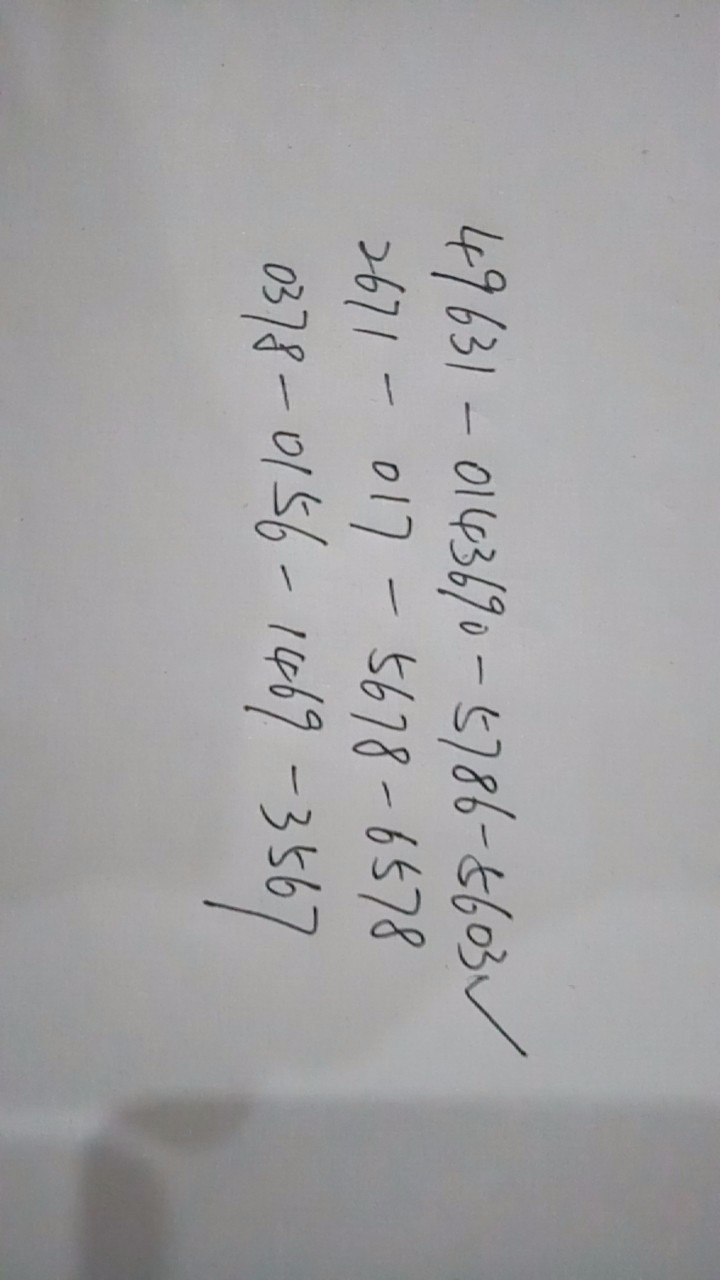 49631-0143690-5786-5603✓
2671-017-5678-6578
0378-0156-1469-3567